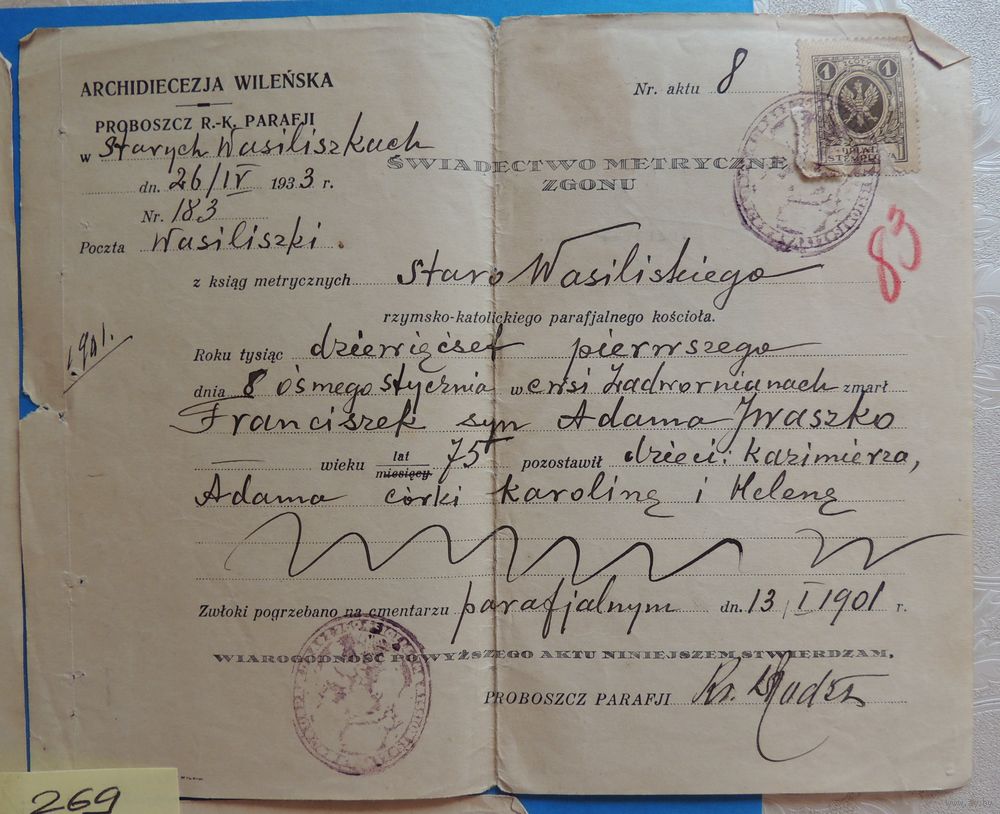 ARCHIDIECEZJA WILEŃSKA
PROBOSZCZ R.-K. PARAFJI
w Starych Wasiliszkach
dn. 26/IV 1933 r.
Nr. 183
Poczta Wasiliszki
Nr. aktu 8
1 1
ŚWIADECTWO METRYCZNE
ZGONU
83
z ksiąg metrycznych Staro Wasiliskiego
rzymsko-katolickiego parafjalnego kościoła.
1901.
Roku tysiąc dziewięćset pierwszego
dnia 8 ósmego stycznia w e wsi Zadwornianach zmarł
Franciszek syn Adama Iwaszko
wieku lat miesięcy 75 pozostawił dzieci: Kazimierza,
Adama córki Karolinę i Helenę
Zwłoki pogrzebano na cmentarzu parafjalnym dn. 13/I 1901 r.
WIAROGODNOŚĆ POWYŻSZEGO AKTU NINIEJSZEM STWIERDZAM,
PROBOSZCZ PARAFJI Ks.
269